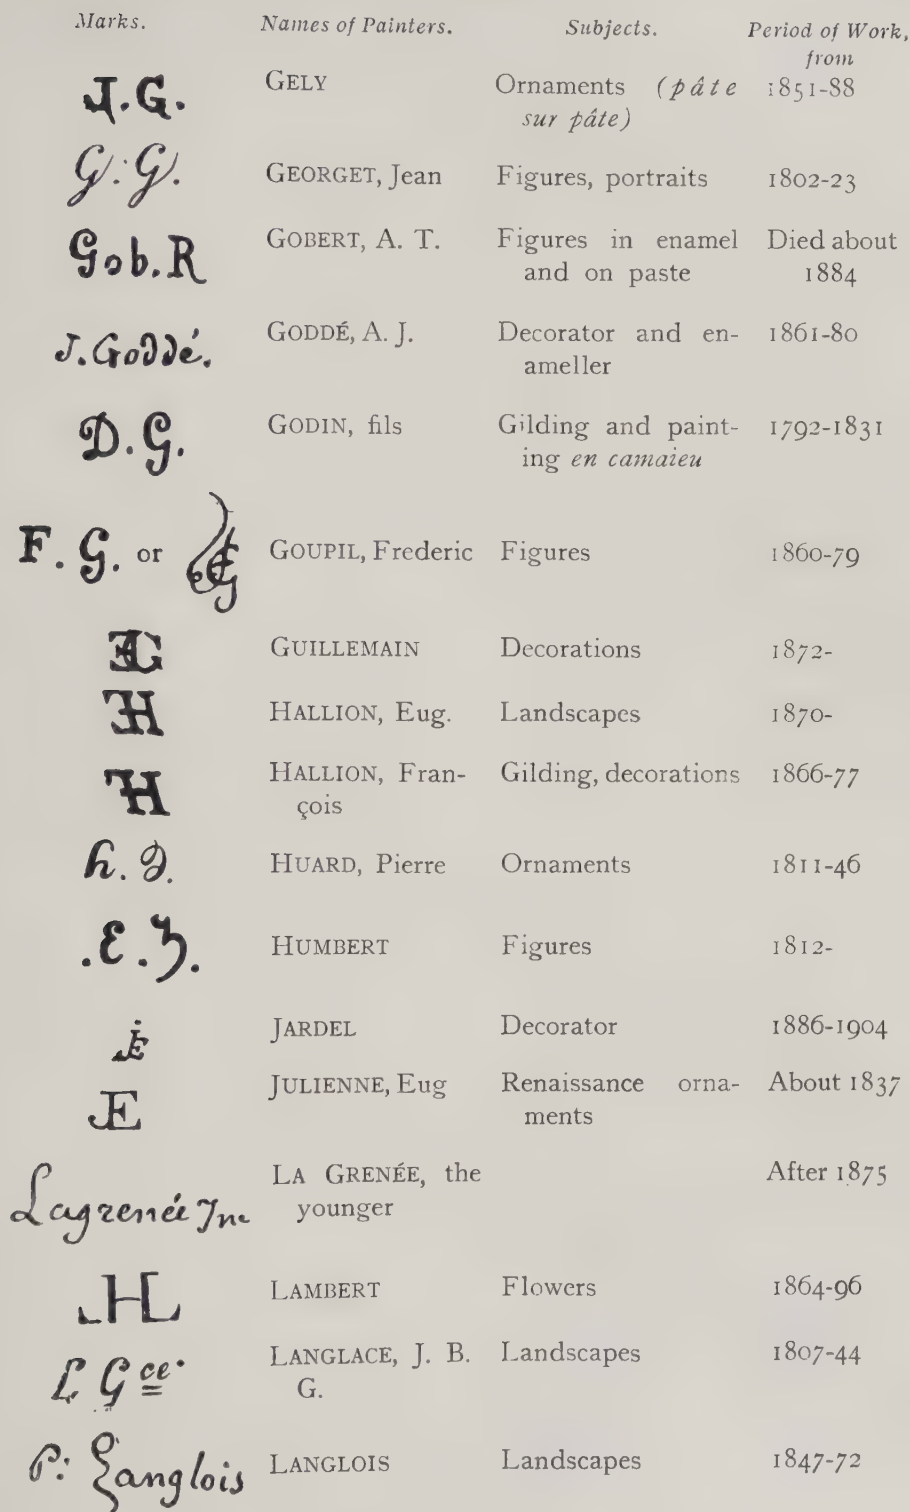 Marks. Names of Painters. Subjects. Period of Work,
from
J.G. GELY Ornaments (pâte 1851-88
sur pâte)
G. G. GEORGET, Jean Figures, portraits 1802-23
Gob.R GOBERT, A. T. Figures in enamel Died about
and on paste 1884
J.Goddé. GODDÉ, A. J. Decorator and en- 1861-80
ameller
D.G. GODIN, fils Gilding and paint- 1792-1831
ing en camaieu
F. G. or GOUPIL, Frederic Figures 1860-79
GUILLEMAIN Decorations 1872-
HALLION, Eug. Landscapes 1870-
HALLION, Fran- Gilding, decorations 1866-77
çois
HUARD, Pierre Ornaments 1811-46
HUMBERT Figures 1812-
JARDEL Decorator 1886-1904
JE JULIENNE, Eug Renaissance orna- About 1837
ments
LA GRENÉE, the After 1875
Lagrenée Jne younger
JHL LAMBERT Flowers 1864-96
L Gce. LANGLACE, J. B. Landscapes 1807-44
G.
P: Langlois LANGLOIS Landscapes 1847-72